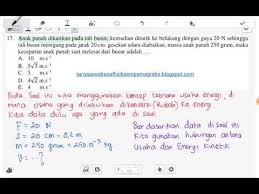 17. Anak panah dikaitkan pada tali busur, kemudian ditarik ke belakang dengan gaya 20 N sehingga
tali busur meregang pada jarak 20 cm. gesekan udara diabaikan, massa anak panah 250 gram, maka
kecepatan anak panah saat melesat dari busur adalah ......
A. 10 ms⁻¹
B. 5√3 ms⁻¹
C. 5 ms⁻¹
D. 4√2 ms⁻¹
E. 4 ms⁻¹
tanyajawabsoalfisikatempamagratis.blogspot.com
Pada Soal ini kita menggunakan konsep teorema usaha energi, di
mana usaha yang dilakukan dikonversi (Rubah) ke Energi
Kita data dulu apa yang ada di soal
F = 20 N
S = 20 cm = 0,2 m
m = 250 gram = 250.10⁻³ kg
V = ... ?
Berdasarkan data di soal ini
Kita gunakan hubungan antara
Usaha dan Energi Kinetik